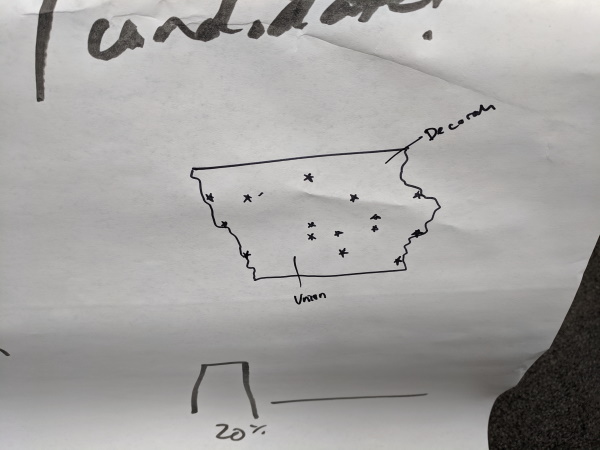 candidate!
Decorah
Union
20%